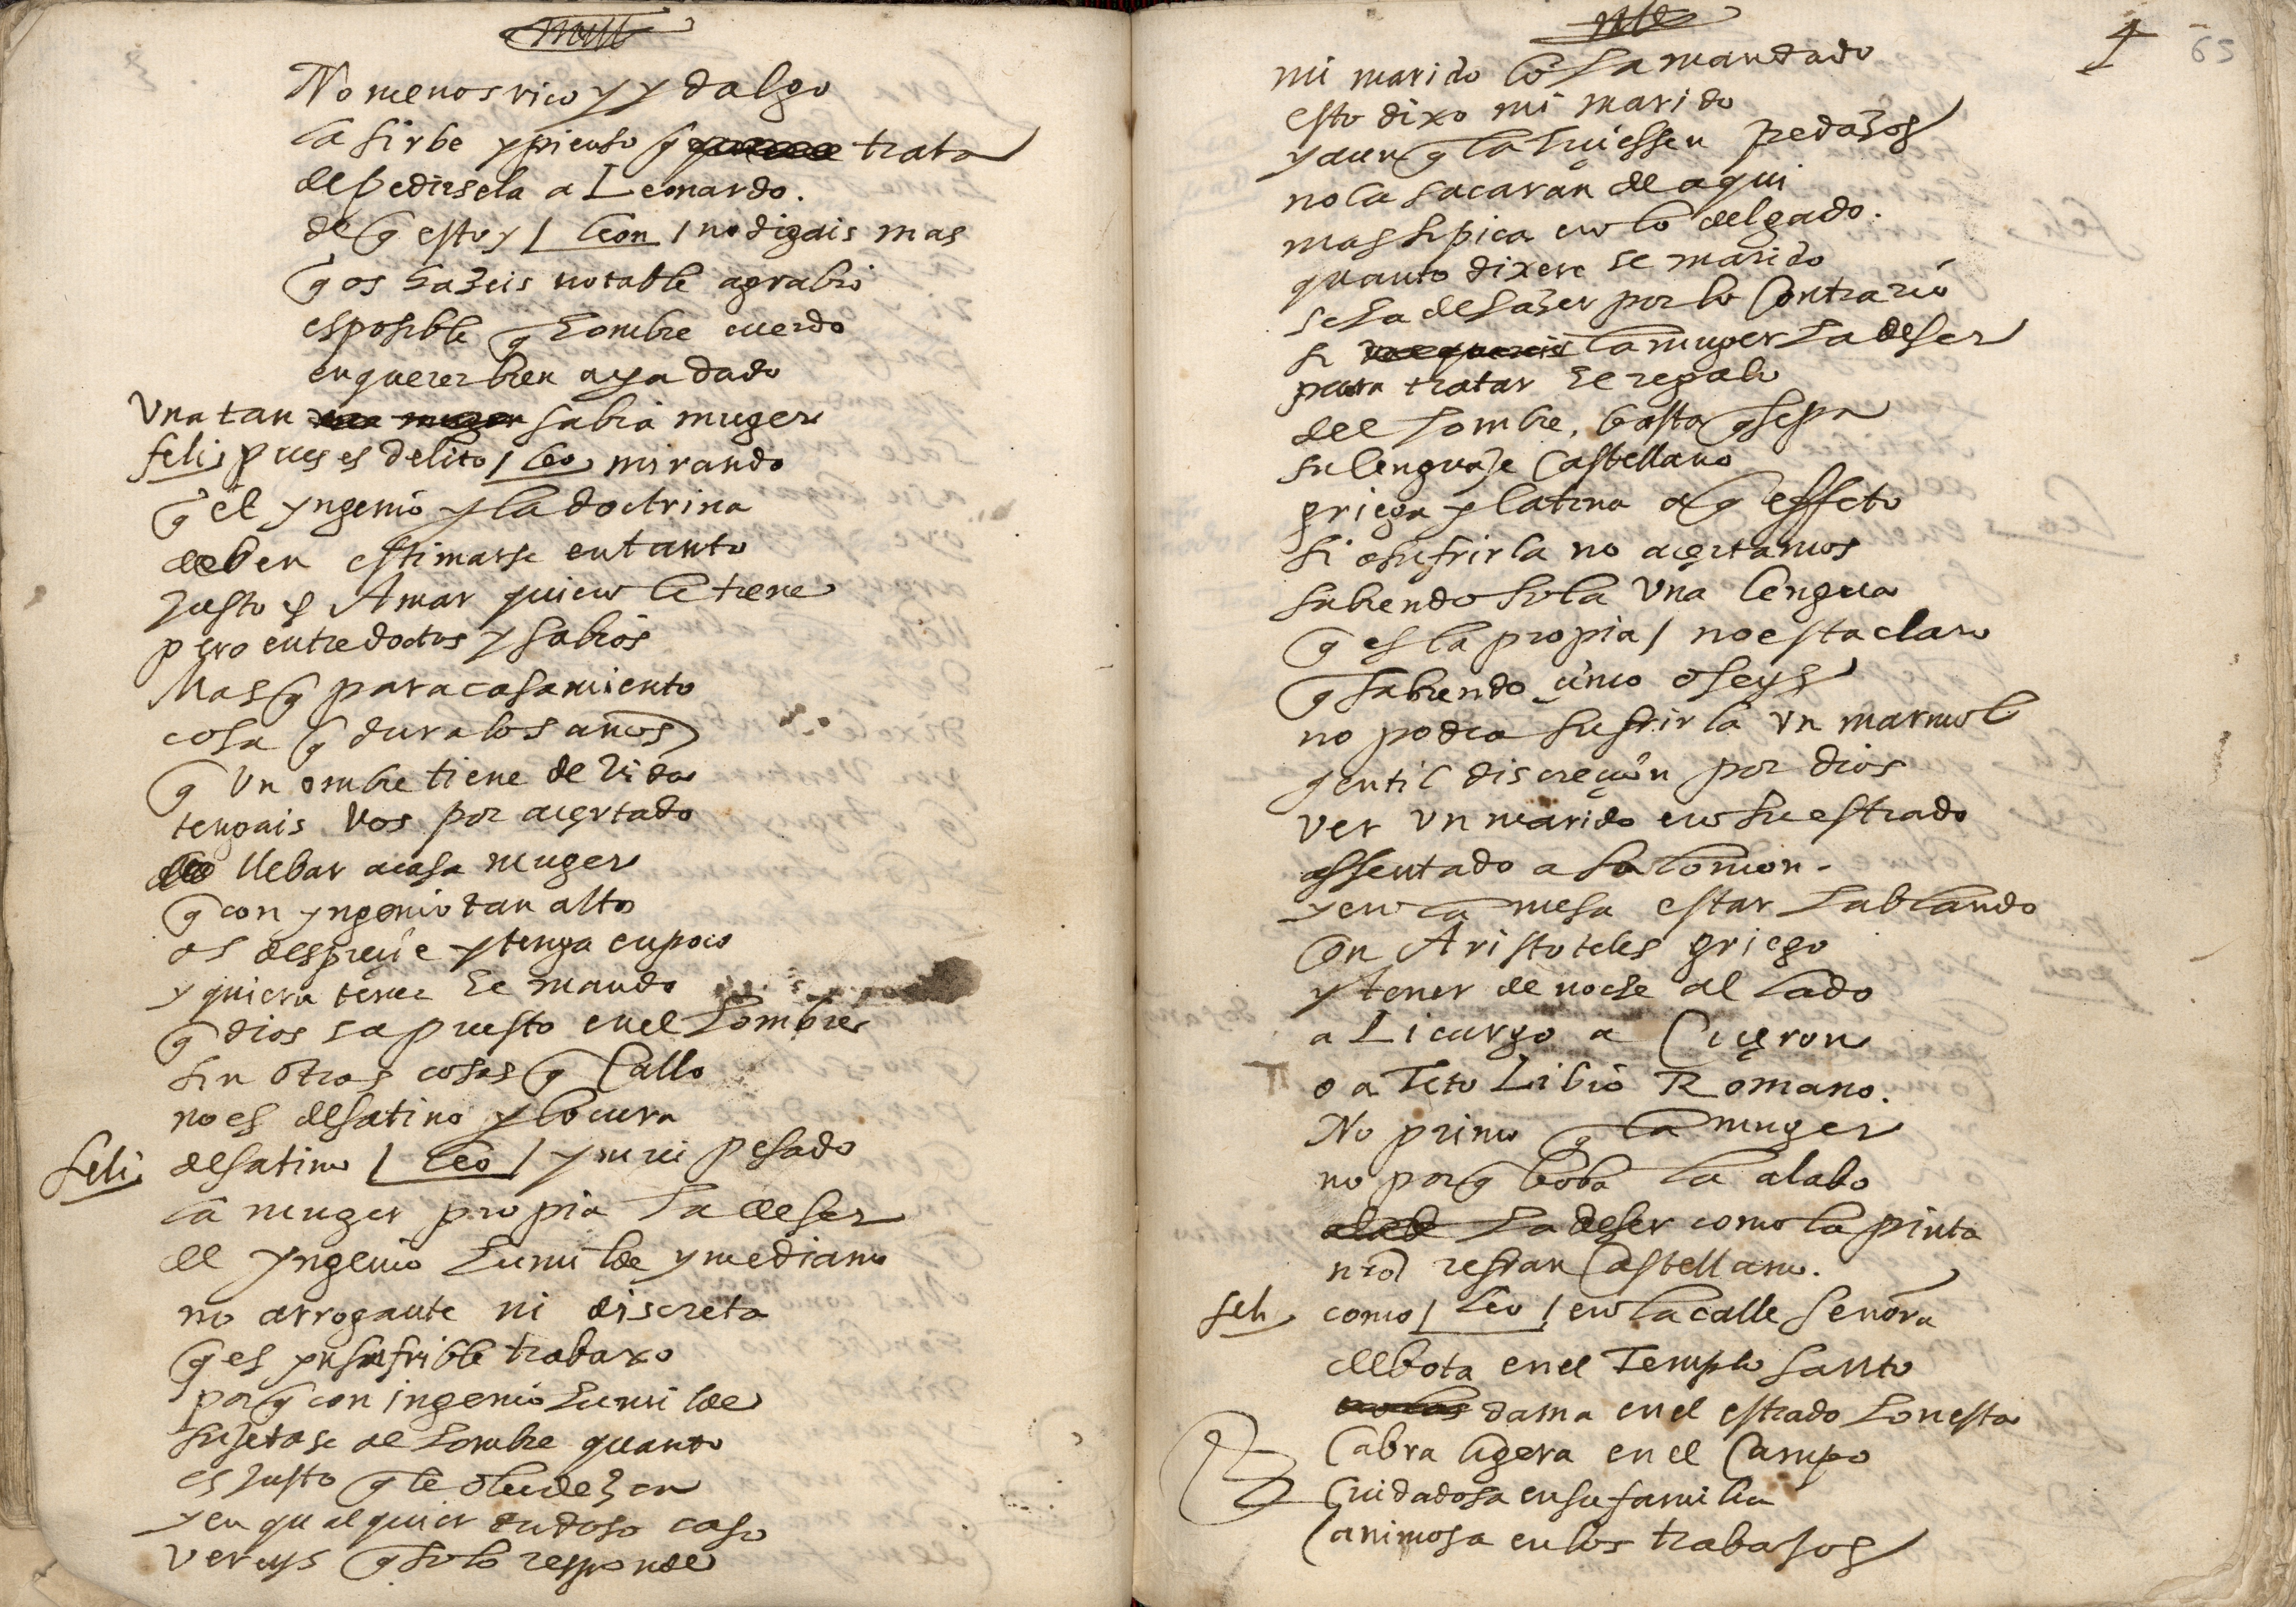 No menos rico y ydalgo
la sirbe y pienso q̃ trata
de pedirsela a Leonardo.
de q̃ estoy / leon / no digais mas
q̃ os hazeis notable agrabio
es posible q̃ hombre cuerdo
en querer bien aya dado
Vna tan sabia muger
feli pues es delito / leo mirando
q̃ el yngenio y la doctrina
deben estimarse en tanto
Justo es Amar quien le tiene
pero entre doctos y sabios
Mas q̃ para casamiento
cosa q̃ dura los años
q̃ Vn ombre tiene de Vida
tengais Vos por açertado
llebar a casa muger
q̃ con yngenio tan alto
os despreçie y tenga en poco
y quiera tener el mando
q̃ dios a puesto en el hombre
sin otras cosas q̃ Callo
no es desatino y locura
feli desatino / leo / y mui pesado
la muger propia ha de ser
de yngenio humilde y mediano
no arrogante ni discreta
q̃ es ynsufrible trabaxo
porq̃ con ingenio humilde
sujetase al hombre quanto
es Justo q̃ le obedezca
y en qualquier dudoso caso
vereys q̃ solo responde
4 65
mi marido lo ha mandado
esto dixo mi marido
y aunq̃ la hiçiessen pedazos
no la sacaran de aqui
mas si pica en lo delgado.
quanto dixere el marido
se ha de hazer por lo Contrario
si la muger ha de ser
para tratar el regalo
del hombre, basta q̃ sepa
su lenguaje Castellano
griega y latina a q̃ effeto
si a sufrirla no açertamos
sabiendo sola Vna lengua
q̃ es la propia / no esta claro
q̃ sabiendo çinco o seys
no podra sufrirla vn marmol
gentil discreçion por dios
ver vn marido en su estrado
assentado a Salomon.
y en la mesa estar hablando
Con Aristoteles griego
y tener de noche al lado
a Licurgo a Ciçeron
o a Tito Libio Romano.
No primo q̃ la muger
no porq̃ boba la alabo
ha de ser como la pinta
nro̅ refran Castellano.
feli como / leo / en la calle señora
debota en el Templo santo
dama en el estrado honesta
Cabra ligera en el Campo
Cuidadosa en su familia
Canimosa en los trabajos